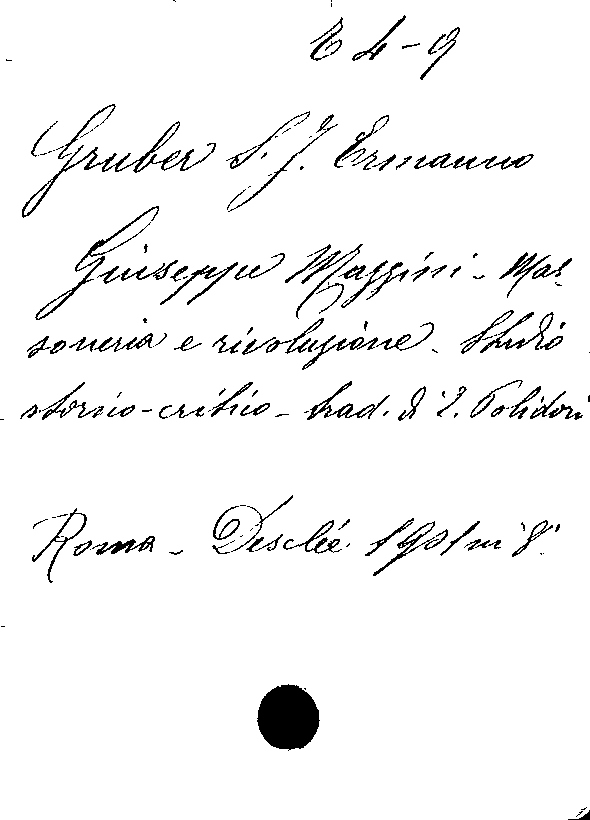 E 4-9
Gruber S. J. Ermanno
Giuseppe Mazzini - Mas-
soneria e rivoluzione - Studio
storico-critico - trad. di E. Polidori
Roma - Desclée 1901 in 8°